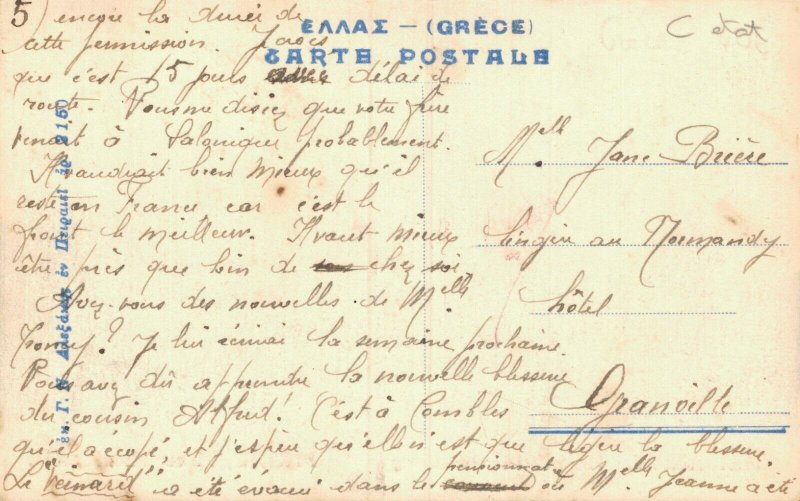 5) encore la durée de
cette permission. Je crois
que c'est 15 jours délai de
route. Vous me disiez que votre frère
venait à Salonique probablement.
Il vaudrait bien mieux qu'il
reste en France car c'est le
front le meilleur. Il vaut mieux
être près que loin de chez soi
Avez-vous des nouvelles de Melle
? Je lui écrirai la semaine prochaine.
Vous avez dû apprendre la nouvelle blessure
du cousin Alfred! C'est à Combles
qu'il a écopé, et j'espère qu'elle n'est que légère la blessure.
Le "veinard" a été évacué dans le pensionnat où Melle Jeanne a été
ΕΛΛΑΣ – (GRÈCE)
CARTE POSTALE
C état
Melle Jane Brière
lingère au Normandy
hôtel
Granville
ἐκ. Γ. Ν. Ἀλεξάκης ἐν Πειραιεῖ 2150